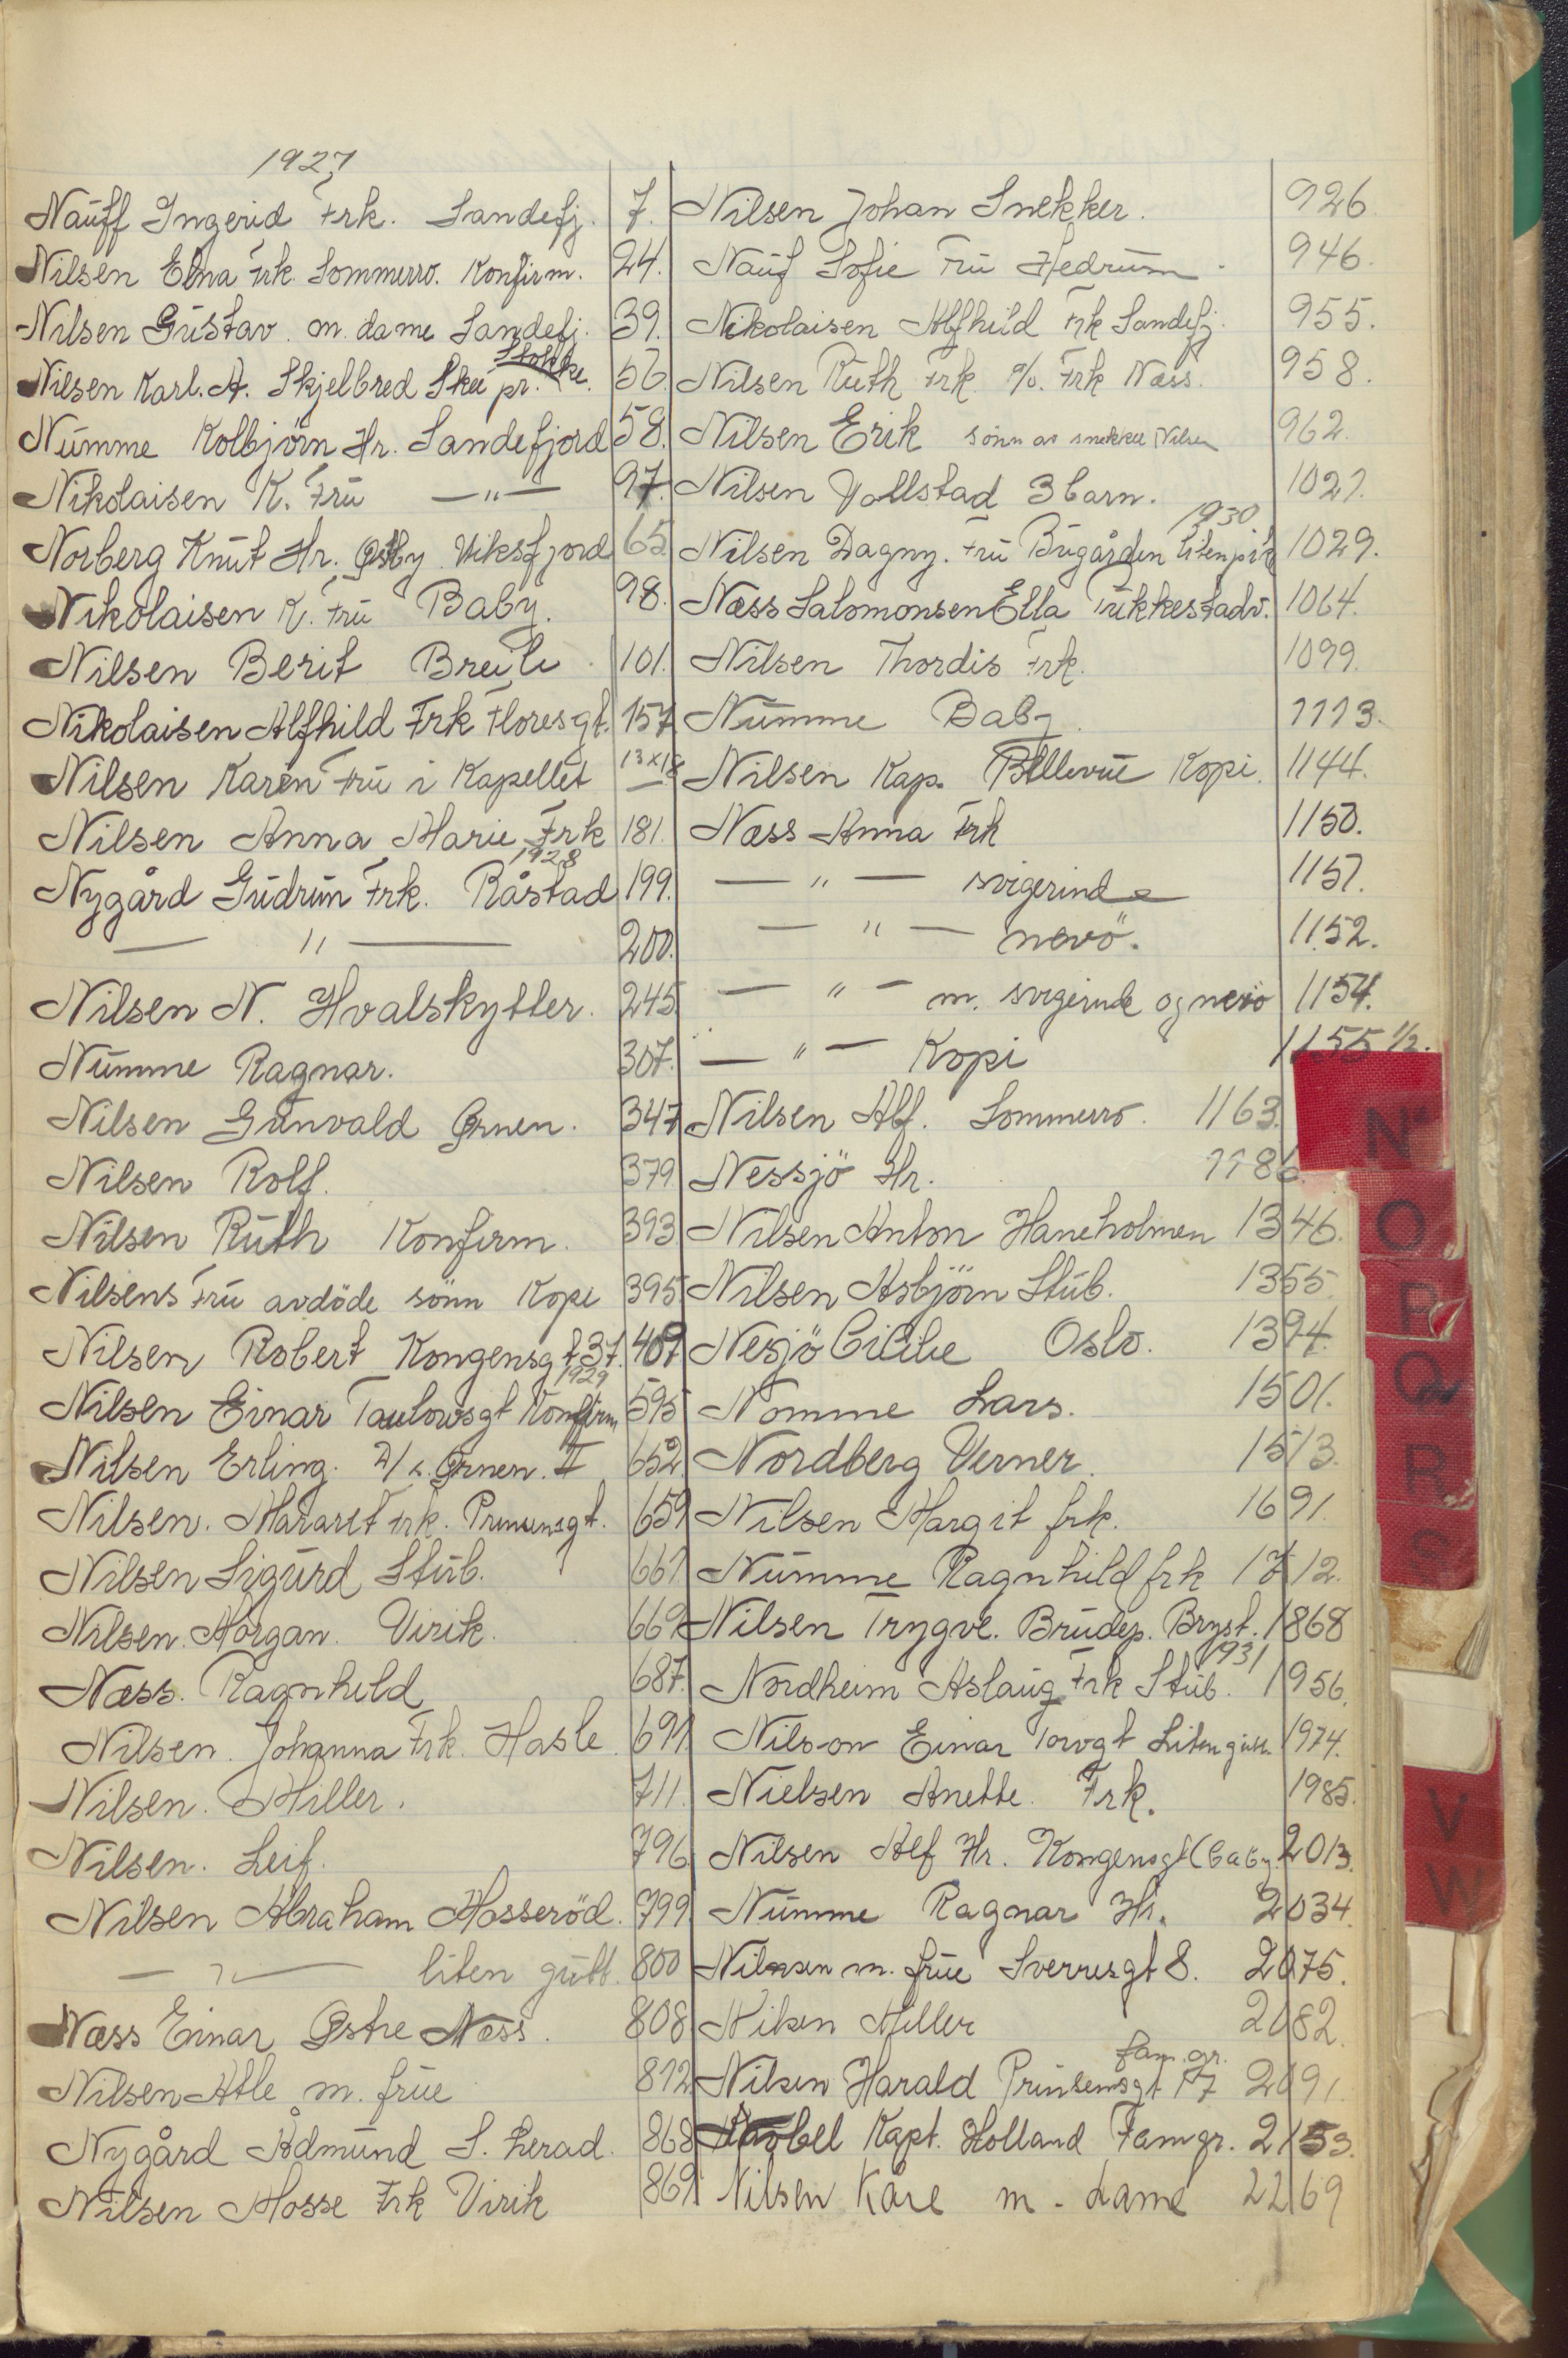 1927
Nauff Ingerid Frk. Sandefj. 7.
Nilsen Edna Frk. Sommerro. Konfirm. 24.
Nilsen Gustav. m. dame Sandefj. 39.
Stokke.
Nilsen Karl. A. Skjelbred Skee pr. 56
Numme Kolbjörn Hr. Sandefjord 58.
Nikolaisen K. Fru —〃— 97.
Norberg Knut Hr. Østby Viksfjord 65.
Nikolaisen K. Fru Baby. 98.
Nilsen Berit Breili. 101.
Nikolaisen Alfhild Frk Floresgt. 157
Nilsen Karen Fru i Kapellet 13x18
Nilsen Anna Marie Frk 181.
1928
Nygård Gudrun Frk. Råstad 199.
— 〃 — 200.
Nilsen N. Hvalskytter. 245.
Numme Ragnar. 307.
Nilsen Gunvald Ørnen. 347
Nilsen Rolf. 379
Nilsen Ruth Konfirm. 393
Nilsens Fru avdöde sönn Kopi 395
Nilsen Robert Kongensgt 37. 409
1929
Nilsen Einar Taulowsgt Konfirm 595
Nilsen Erling. Ørnen. II 652
Nilsen. Mararet Frk. Prinsensgt. 659
Nilsen Sigurd Stub. 661
Nilsen. Morgan. Virik. 669
Næss. Ragnhild 687.
Nilsen. Johanna Frk. Hasle. 691
Nilsen. Miller. 711.
Nilsen. Leif. 796
Nilsen Abraham Mosseröd. 799
— 〃 — liten gutt. 800
Næss Einar Østre Næss. 808
Nilsen Atle m. frue 812
Nygård Ådmund S. Herad. 868
Nilsen Mosse Frk Virik 869
Nilsen Johan Snekker. 926
Nauf Sofie Fru Hedrum. 946.
Nikolaisen Alfhild Frk Sandefj. 955.
Nilsen Ruth Frk. %. Frk Næss. 958.
Nilsen Erik sönn av snekker Nilsen 962.
Nilsen Vollstad 3 barn. 1021.
1930
Nilsen Dagny. Fru Bugården liten pik 1029.
Næss Salomonsen Ella Trikkestadv. 1064.
Nilsen Thordis Frk. 1099.
Numme Baby 1113.
Nilsen Kap. Bellevue Kopi. 1144.
Næss Anna Frk 1150.
— 〃 — svigerinde 1151.
— 〃 — nevö. 1152.
— 〃 — m. svigerinde og nevö 1154.
— 〃 — Kopi 1155 1/2.
Nilsen Alf. Sommerro. 1163.
Nessjö Hr. 1186.
Nilsen Anton Haneholmen 1346.
Nilsen Asbjörn Stub. 1355.
Nesjö Cicilie Oslo. 1394.
Nomme Lars. 1501.
Nordberg Verner. 1513.
Nilsen Margit frk. 1691.
Numme Ragnhild frk 1712.
Nilsen Trygve. Brudep. Bryst. 1868
1931
Nordheim Aslaug Frk Stub. 1956.
Nilsson Einar Torvgt Liten gutt. 1974.
Nielsen Anette. Frk. 1985.
Nilsen Alf Hr. Kongensgt (baby. 2013.
Numme Ragnar Hr. 2034.
Nilssen m. frue Sverresgt 8. 2075.
Nilsen Miller 2082.
fam. gr.
Nilsen Harald Prinsensgt 17 2091.
Kapt. Holland Famgr. 2153.
Nilsen Kåre m. dame 2269
N
O
P
Q
R
S
V
W